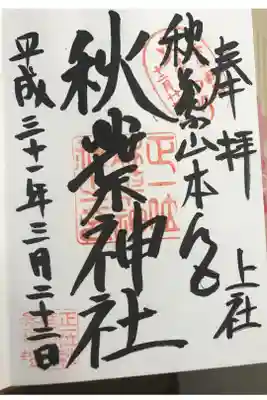 奉拝
上社
秋葉山本宮
秋葉神社
平成三十一年三月二十二日